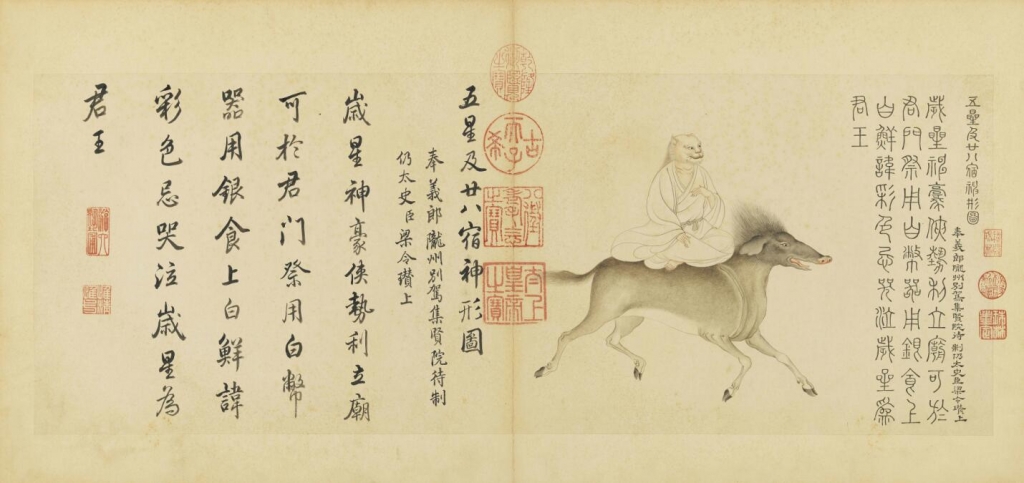 五星及廿八宿神形圖
奉義郎隴州別駕集賢院待制仍太史臣梁令瓚上
歲星神豪俠勢利立廟可於
君門祭用白幣器用銀食上
白鮮諱彩色忌哭泣歲星為
君王
古希天子
八徵耄念之寶
太上皇帝之寶
五星及廿八宿神形圖
奉義郎隴州別駕集賢院待制
仍太史臣梁令瓚上
歲星神豪俠勢利立廟
可於君门祭用白幣
器用銀食上白鮮諱
彩色忌哭泣歲星為
君王